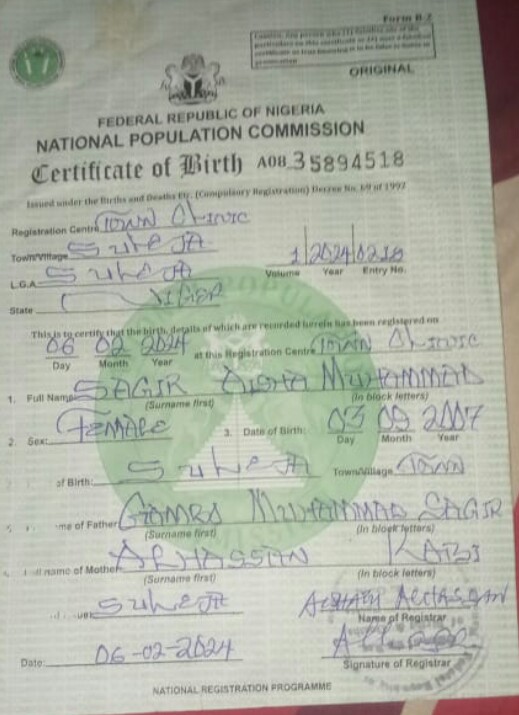 Form B-2
ORIGINAL
FEDERAL REPUBLIC OF NIGERIA
NATIONAL POPULATION COMMISSION
Certificate of Birth A08 35894518
Issued under the Births and Deaths Etc. (Compulsory Registration) Decree No. 69 of 1992
Registration Centre TOWN CLINIC
Town/Village SULEJA
L.G.A SULEJA
1 2024 0218
Volume Year Entry No.
State NIGER
This is to certify that the birth, details of which are recorded herein has been registered on
06 02 2024 at this Registration Centre TOWN CLINIC
Day Month Year
1. Full Name SAGIR AISHA MUHAMMAD
(Surname first) (In block letters)
2. Sex: FEMALE 3. Date of Birth: 03 09 2007
Day Month Year
of Birth: SULEJA Town/Village TOWN
me of Father MUHAMMAD SAGIR
(Surname first) (In block letters)
name of Mother ALHASSAN
(Surname first) (In block letters)
SULEJA ALHASSAN
Name of Registrar
Date: 06-02-2024
Signature of Registrar
NATIONAL REGISTRATION PROGRAMME